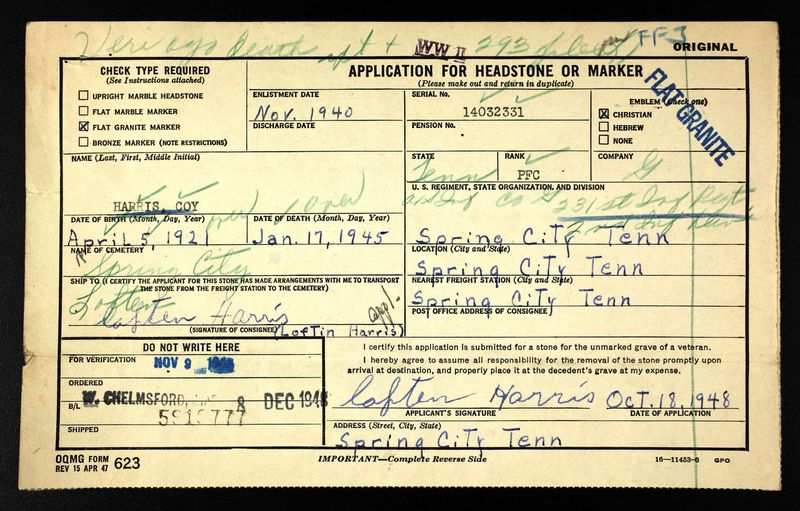 Death
WW II
293
FF-3
ORIGINAL
CHECK TYPE REQUIRED
(See Instructions attached)
UPRIGHT MARBLE HEADSTONE
FLAT MARBLE MARKER
☒ FLAT GRANITE MARKER
BRONZE MARKER (NOTE RESTRICTIONS)
APPLICATION FOR HEADSTONE OR MARKER
(Please make out and return in duplicate)
ENLISTMENT DATE
Nov. 1940
DISCHARGE DATE
SERIAL No.
14032331
PENSION No.
EMBLEM (Check one)
☒ CHRISTIAN
HEBREW
NONE
FLAT GRANITE
NAME (Last, First, Middle Initial)
HARRIS, COY
STATE
Tenn
RANK
PFC
COMPANY
G
U. S. REGIMENT, STATE ORGANIZATION, AND DIVISION
Co G 231st Inf Regt
DATE OF BIRTH (Month, Day, Year)
April 5, 1921
DATE OF DEATH (Month, Day, Year)
Jan. 17, 1945
NAME OF CEMETERY
Spring City
Spring City Tenn
LOCATION (City and State)
Spring City Tenn
NEAREST FREIGHT STATION (City and State)
Spring City Tenn
POST OFFICE ADDRESS OF CONSIGNEE
SHIP TO (I CERTIFY THE APPLICANT FOR THIS STONE HAS MADE ARRANGEMENTS WITH ME TO TRANSPORT
THE STONE FROM THE FREIGHT STATION TO THE CEMETERY)
Loften
Loften Harris
appl.
(SIGNATURE OF CONSIGNEE) (Loftin Harris)
DO NOT WRITE HERE
FOR VERIFICATION
NOV 9 1948
ORDERED
B/L
W. CHELMSFORD, 8 DEC 1948
5915777
SHIPPED
I certify this application is submitted for a stone for the unmarked grave of a veteran.
I hereby agree to assume all responsibility for the removal of the stone promptly upon
arrival at destination, and properly place it at the decedent's grave at my expense.
Loften Harris Oct. 18, 1948
APPLICANT'S SIGNATURE
DATE OF APPLICATION
ADDRESS (Street, City, State)
Spring City Tenn
OQMG FORM
REV 15 APR 47 623
IMPORTANT—Complete Reverse Side
16—11453-6 GPO